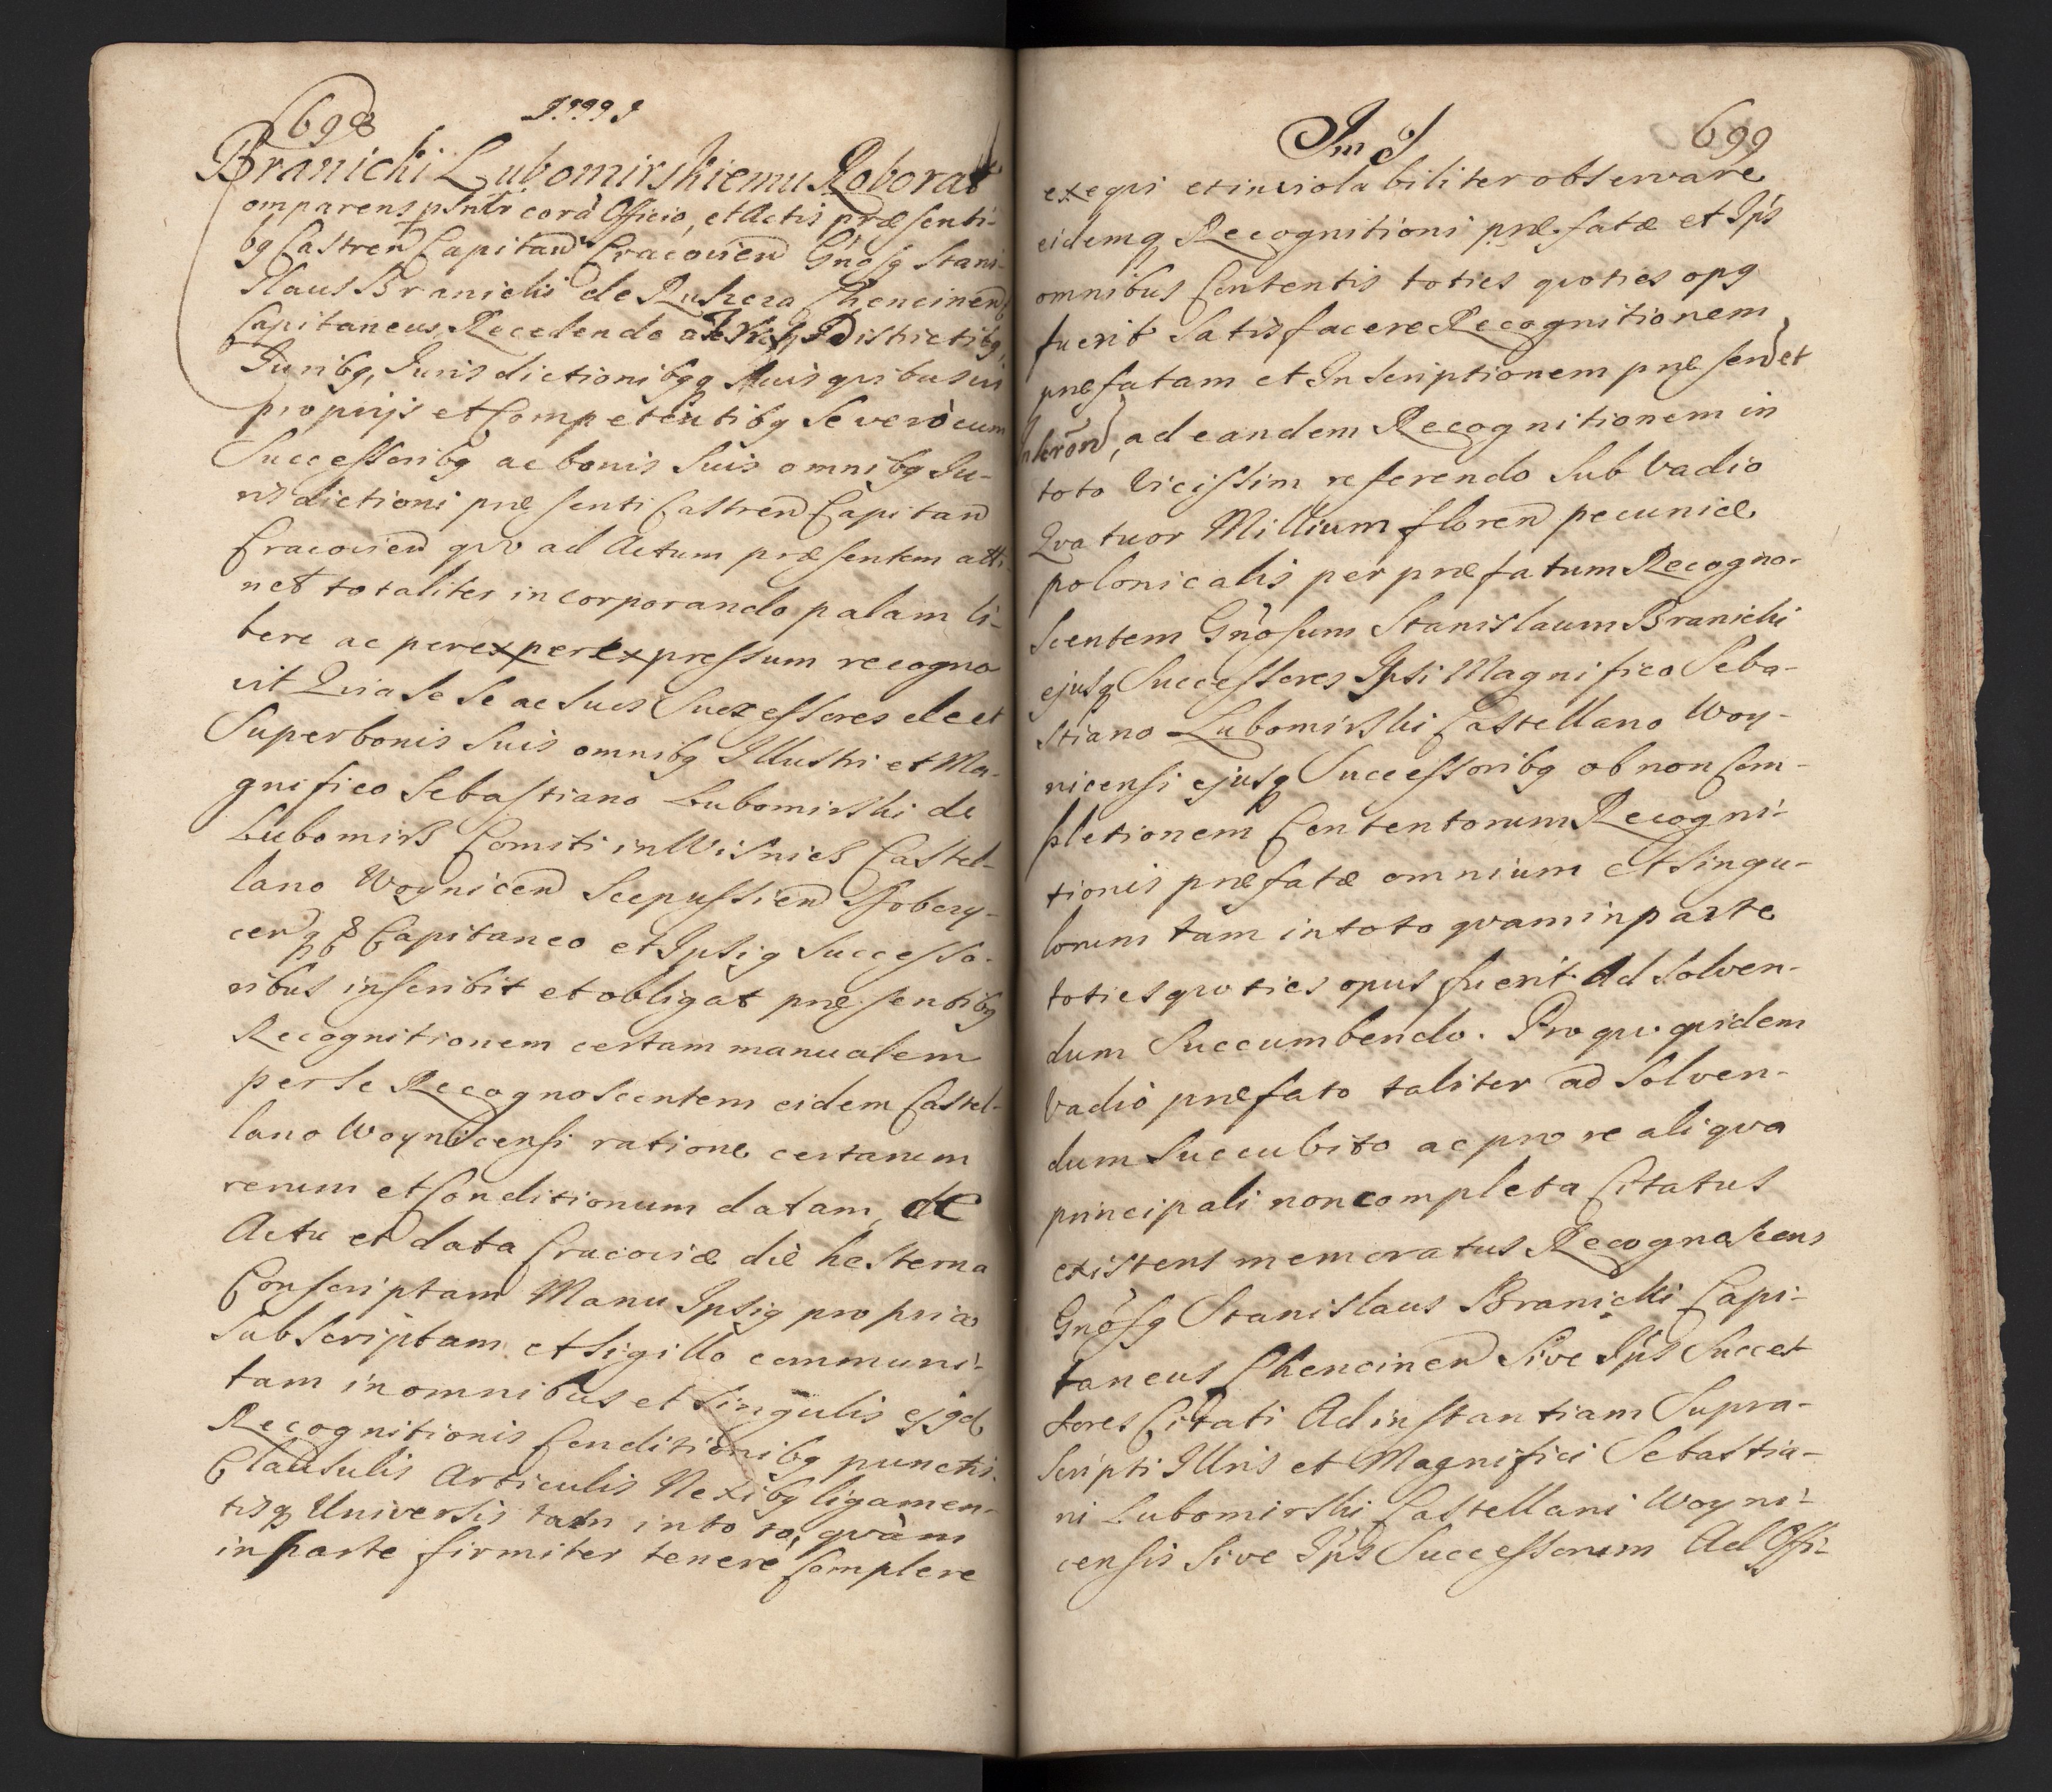 698
Branicki Lubomirskiemu Roborat
omparens psntr corà Officio, et Actis præsenti-
bq Castren Capitan Cracovien Gnosq Stani-
slaus Branicki de Ruszcza Chencinen
Capitaneus Recedendo Districtibq,
Juribq, Jurisdictionibqq suis quibusvis
proprijs et Competentibq Se verò cum
Successoribq ac bonis suis omnibq Ju-
risdictioni præsenti Castren Capitan
Cracovien quo ad Actum præsentem atti-
net totaliter incorporando palam li-
bere ac per expressum recogno
vit Quia Se Se ac Suos Successores de et
Super bonis Suis omnibq Illustri et Ma-
gnifico Sebastiano Lubomirski de
Lubomirs Comiti in Wisnics Castel-
lano Woynicen Scepussien Dobczy-
cenq & Capitaneo et Ipsiq Successo-
ribus inscribit et obligat præsentibq
Recognitionem certam manualem
per Se Recognoscentem eidem Castel-
lano Woynicensi ratione certarum
rerum et Conditionum datam, de
Actu et data Cracoviæ die hesterna
Conscriptam Manu Ipsiq propria
Subscriptam et Sigillo communi-
tam in omnibus et Singulis ejqd
Recognitionis Conditionibq punctis
Clausulis Articulis Nexibq ligamen-
tisq Universis tam in toto, quàm
in parte firmiter tenere Complere
699
exequi et inviolabiliter observare
eidemq Recognitioni præfatæ et Ips
omnibus Contentis toties quoties opq
fuerit Satisfacere Recognitionem
præfatam et Inscriptionem præsen et
ad eandem Recognitionem in
toto vicissim referendo Sub Vadio
Quatuor Millium floren pecuniæ
polonicalis per præfatum Recogno-
scentem Gnosum Stanislaum Branicki
ejusq Successores Ipsi Magnifico Seba-
stiano Lubomirski Castellano Woy-
nicensi ejusq Successoribq ob non Com-
pletionem Contentorum Recogni-
tionis præfatæ omnium et Singu-
lorum tam in toto quam in parte
toties quoties opus fuerit Ad Solven-
dum Succumbendo. Pro quo quidem
Vadio præfato taliter ad Solven-
dum Succubito ac pro re aliqua
principali non completa Citatus
existens memoratus Recognoscens
Gnosq Stanislaus Branicki Capi-
taneus Chencinen Sive Ips Succes
sores Citati Ad instantiam Supra-
scripti Illris et Magnifici Sebastia-
ni Lubomirski Castellani Woyni-
censis Sive Ips Successorum Ad Offi-